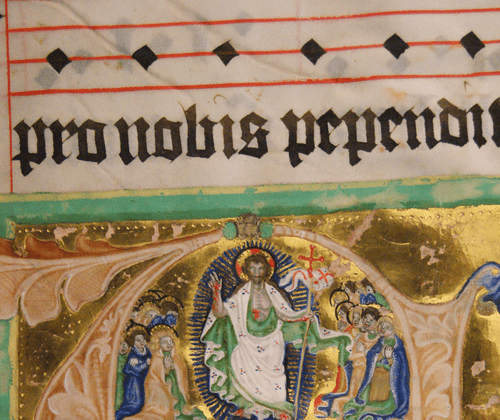 pro nobis pependit